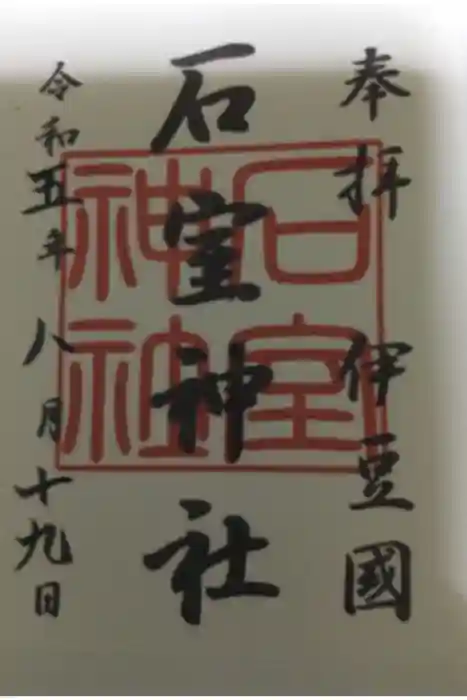 奉拝 伊豆國
石室神社
石室
神社
令和五年八月十九日